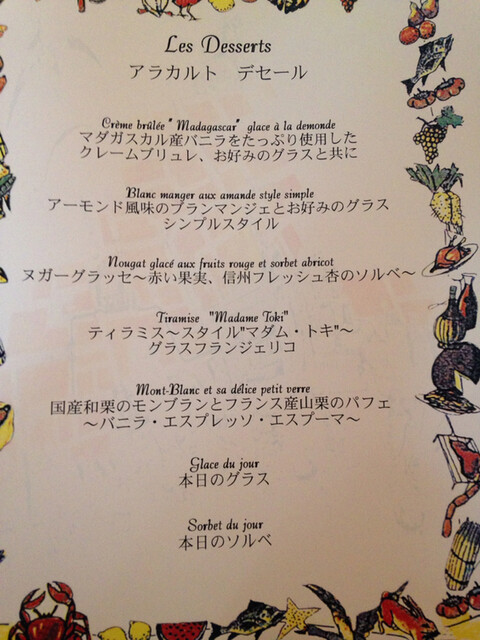 Les Desserts
アラカルト　デセール
Crème brûlée " Madagascar" glace à la demonde
マダガスカル産バニラをたっぷり使用した
クレームブリュレ、お好みのグラスと共に
Blanc manger aux amande style simple
アーモンド風味のブランマンジェとお好みのグラス
シンプルスタイル
Nougat glacé aux fruits rouge et sorbet abricot
ヌガーグラッセ～赤い果実、信州フレッシュ杏のソルベ～
Tiramise "Madame Toki"
ティラミス～スタイル"マダム・トキ"～
グラスフランジェリコ
Mont-Blanc et sa délice petit verre
国産和栗のモンブランとフランス産山栗のパフェ
～バニラ・エスプレッソ・エスプーマ～
Glace du jour
本日のグラス
Sorbet du jour
本日のソルベ